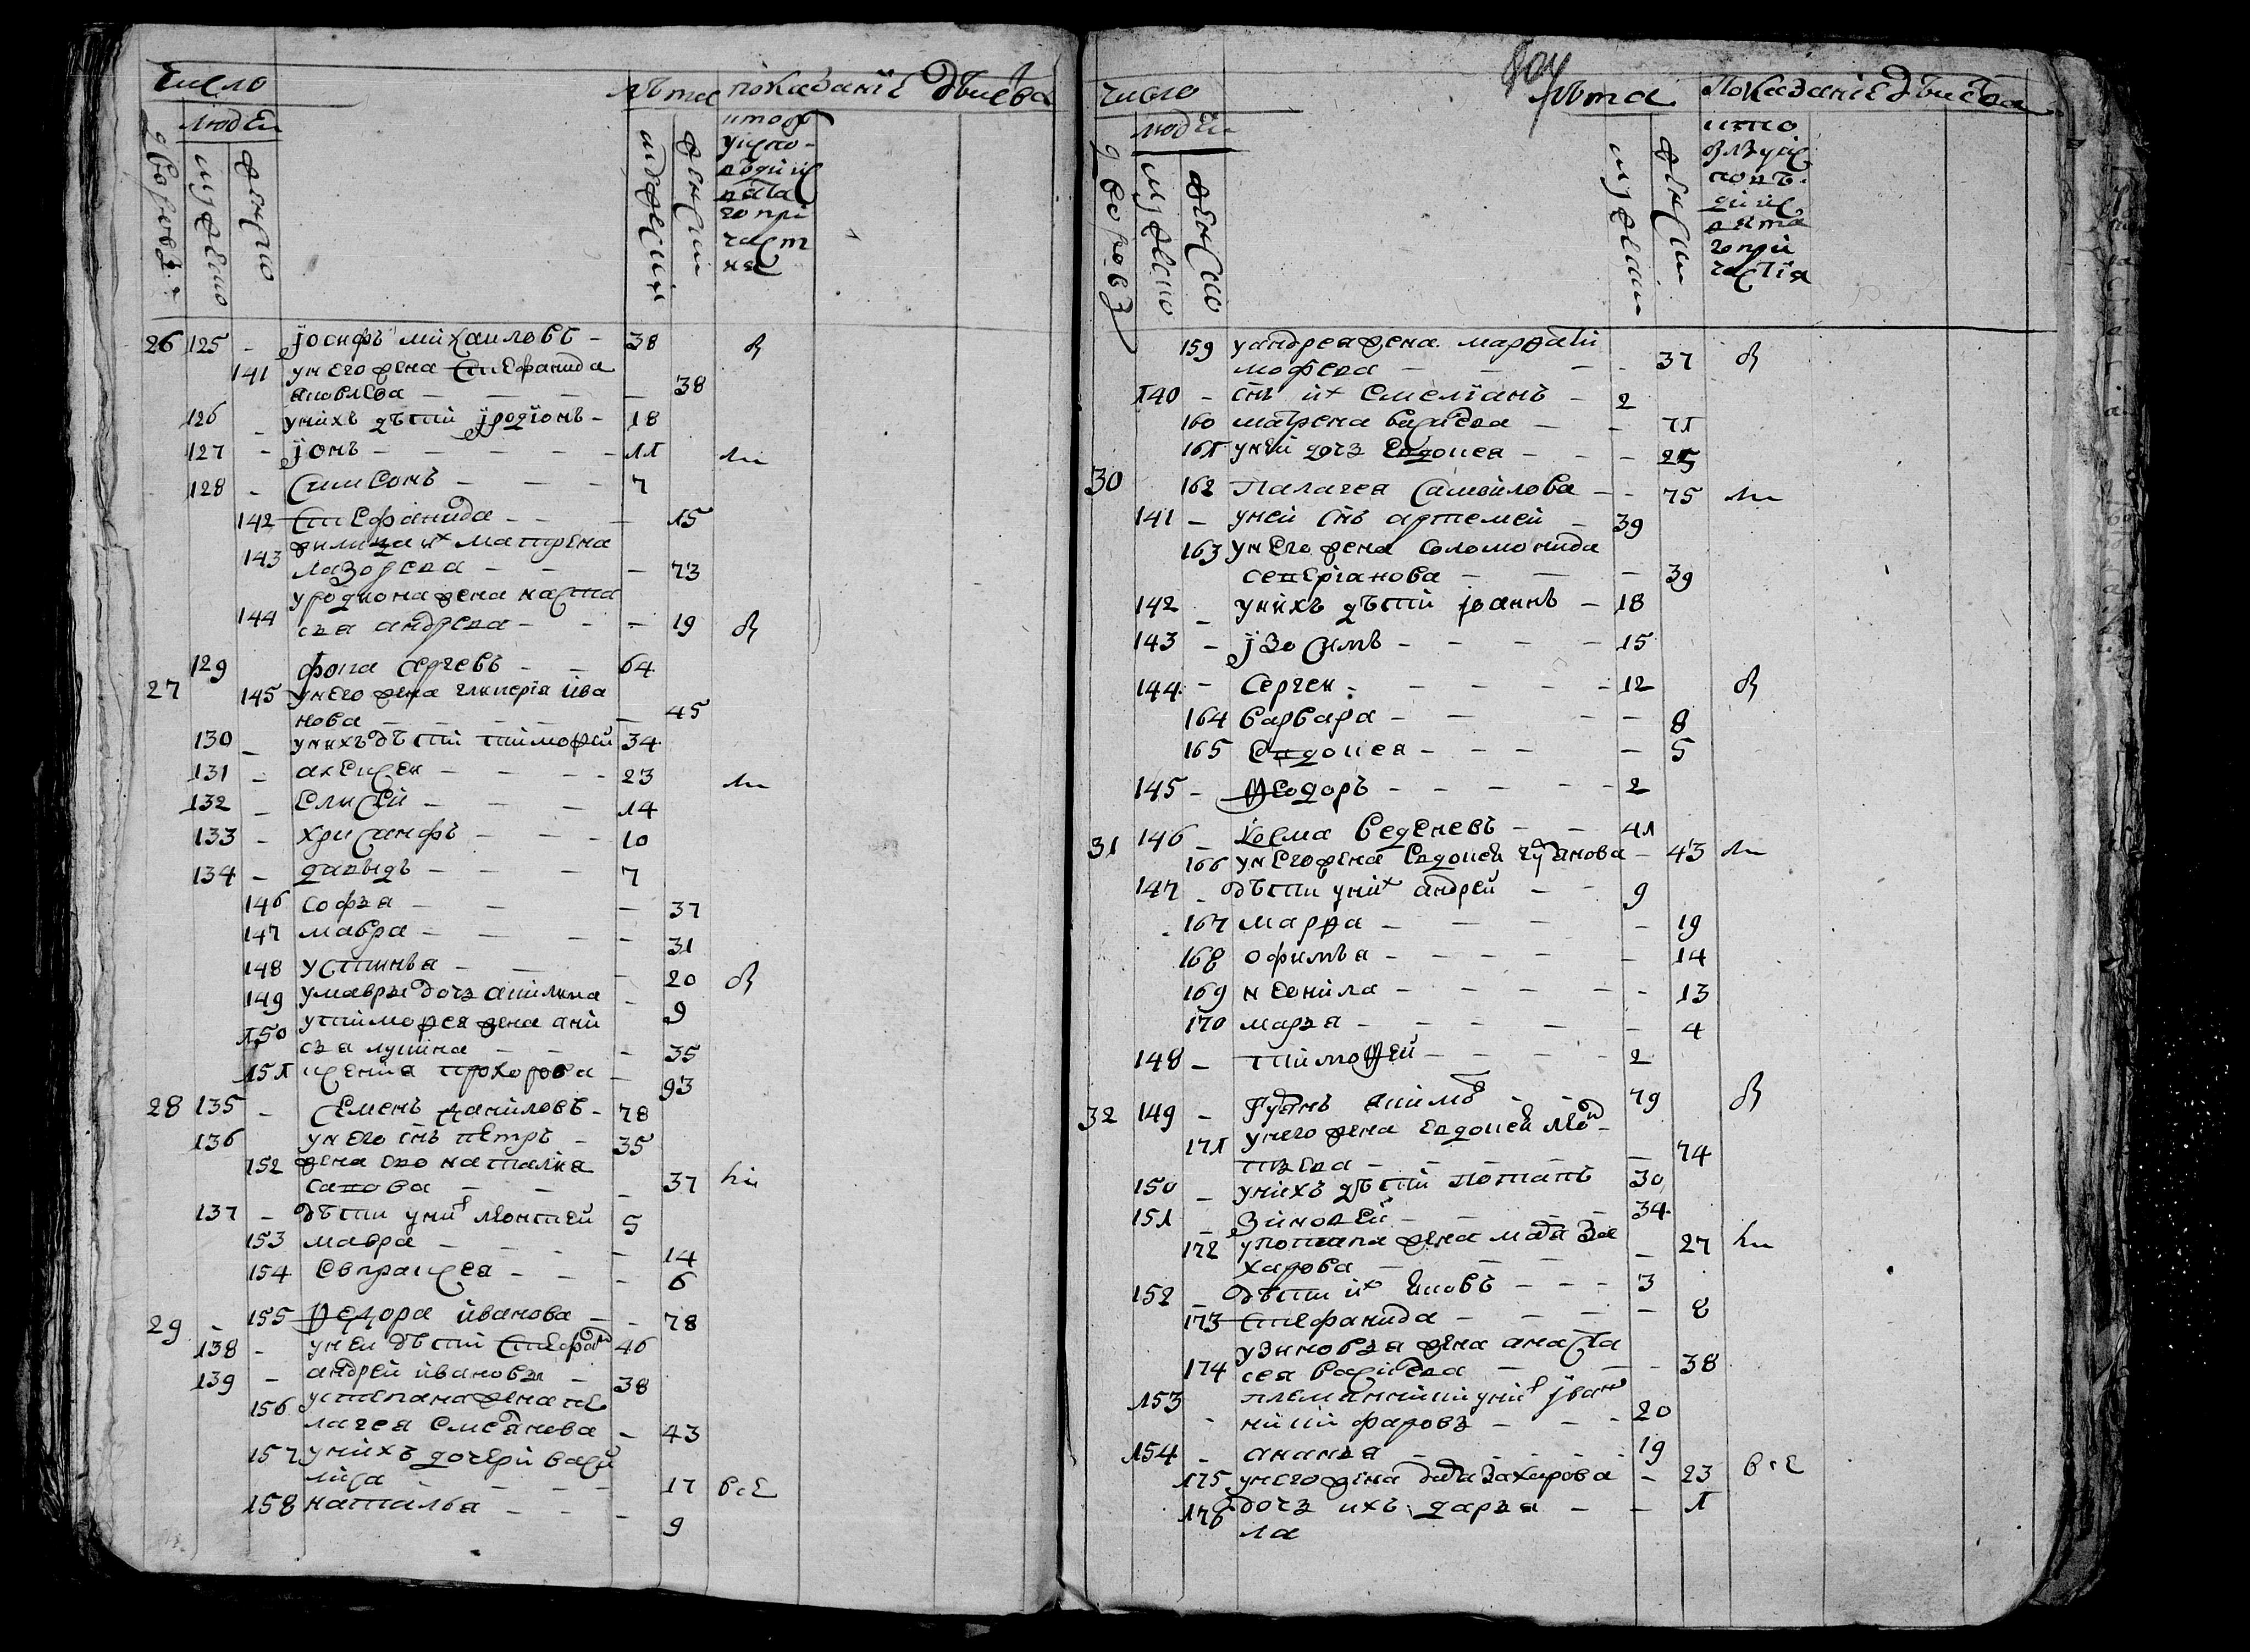 число
лѣта показанїе дѣйства
людей
дворовъ
мужеско
женско
мужескїи
женскїи
кто
у испо
вѣди и с
вята
го прі
част
ия
26 125 - іосифъ михаиловъ - 38
141 у него жена стефанида
яковлева - 38
126 - у нихъ дѣти іродїонъ - 18
127 - іонъ - 11
128 - симеонъ - 7
142 стефанида - 15
143 матрена
лазорева - 73
у родиона жена наста
144 сья андреева - 19
129 фока сергеевъ - 64
27 145 у него жена гликерїа ива
нова - 45
130 - у нихъ дѣти тимофей 34
131 - алексеи - 23
132 - елисей - 14
133 - хрисанфъ - 10
134 - давыдъ - 7
146 софья - 37
147 мавра - 31
148 устинья - 20
149 у мавры дочь акилина - 9
150 у тимофея жена ани
сья лукина - 35
151 ксенїа прохорова - 93
28 135 - семенъ даниловъ - 78
136 у него снъ петръ - 35
152 жена ево наталия
савова - 37
137 - дѣти у них леонтей 5
153 мавра - 14
154 евпраксея - 6
29 - 155 федора иванова - 78
138 - у неи дѣти стефан 46
139 - андрей ивановы - 38
156 у степана жена пе
лагея емельянова - 43
157 у нихъ дочери васи
лиса - 17 все
158 наталья - 9
804
число
лѣта показанїе дѣйства
людей
дворовъ
мужеско
женско
мужескии
женскии
кто
былъ у ис
повѣ
ди и с
вята
го при
частїя
159 у андрея жена марфа ти
мофеева - 37
140 - снъ их емелїанъ - 2
160 матрена василева - 71
161 у ней дочь евдокея - 25
30 162 палагея самоилова - 75
141 - у ней снъ артемей - 39
163 у него жена соломонида
северїанова - 39
142 - у нихъ дѣти іоаннъ - 18
143 - ізосимъ - 15
144 - сергеи - 12
164 варвара - 8
165 евдокея - 5
145 - феодоръ - 2
31 146 - косма веденевъ - 41
166 у него жена евдокея гурянова - 43
147 - дѣти у них андрей - 9
167 марфа - 19
168 офимья - 14
169 неонила - 13
170 марья - 4
148 - тимофей - 2
32 149 - гурянъ акимов - 79
171 у него жена евдокея леон
тьева - 74
150 - у нихъ дѣти потапъ 30
151 - зиновей - 34
172 у потапа жена мавра за
харова - 27
152 - дѣти их яковъ - 3
173 стефанида - 8
у зиновья жена анаста
174 сея василева - 38
153 племянники у них іван
- 20
154 - ананья - 19
175 у него жена захарова - 23 все
176 дочь ихъ дарья - 1
ла